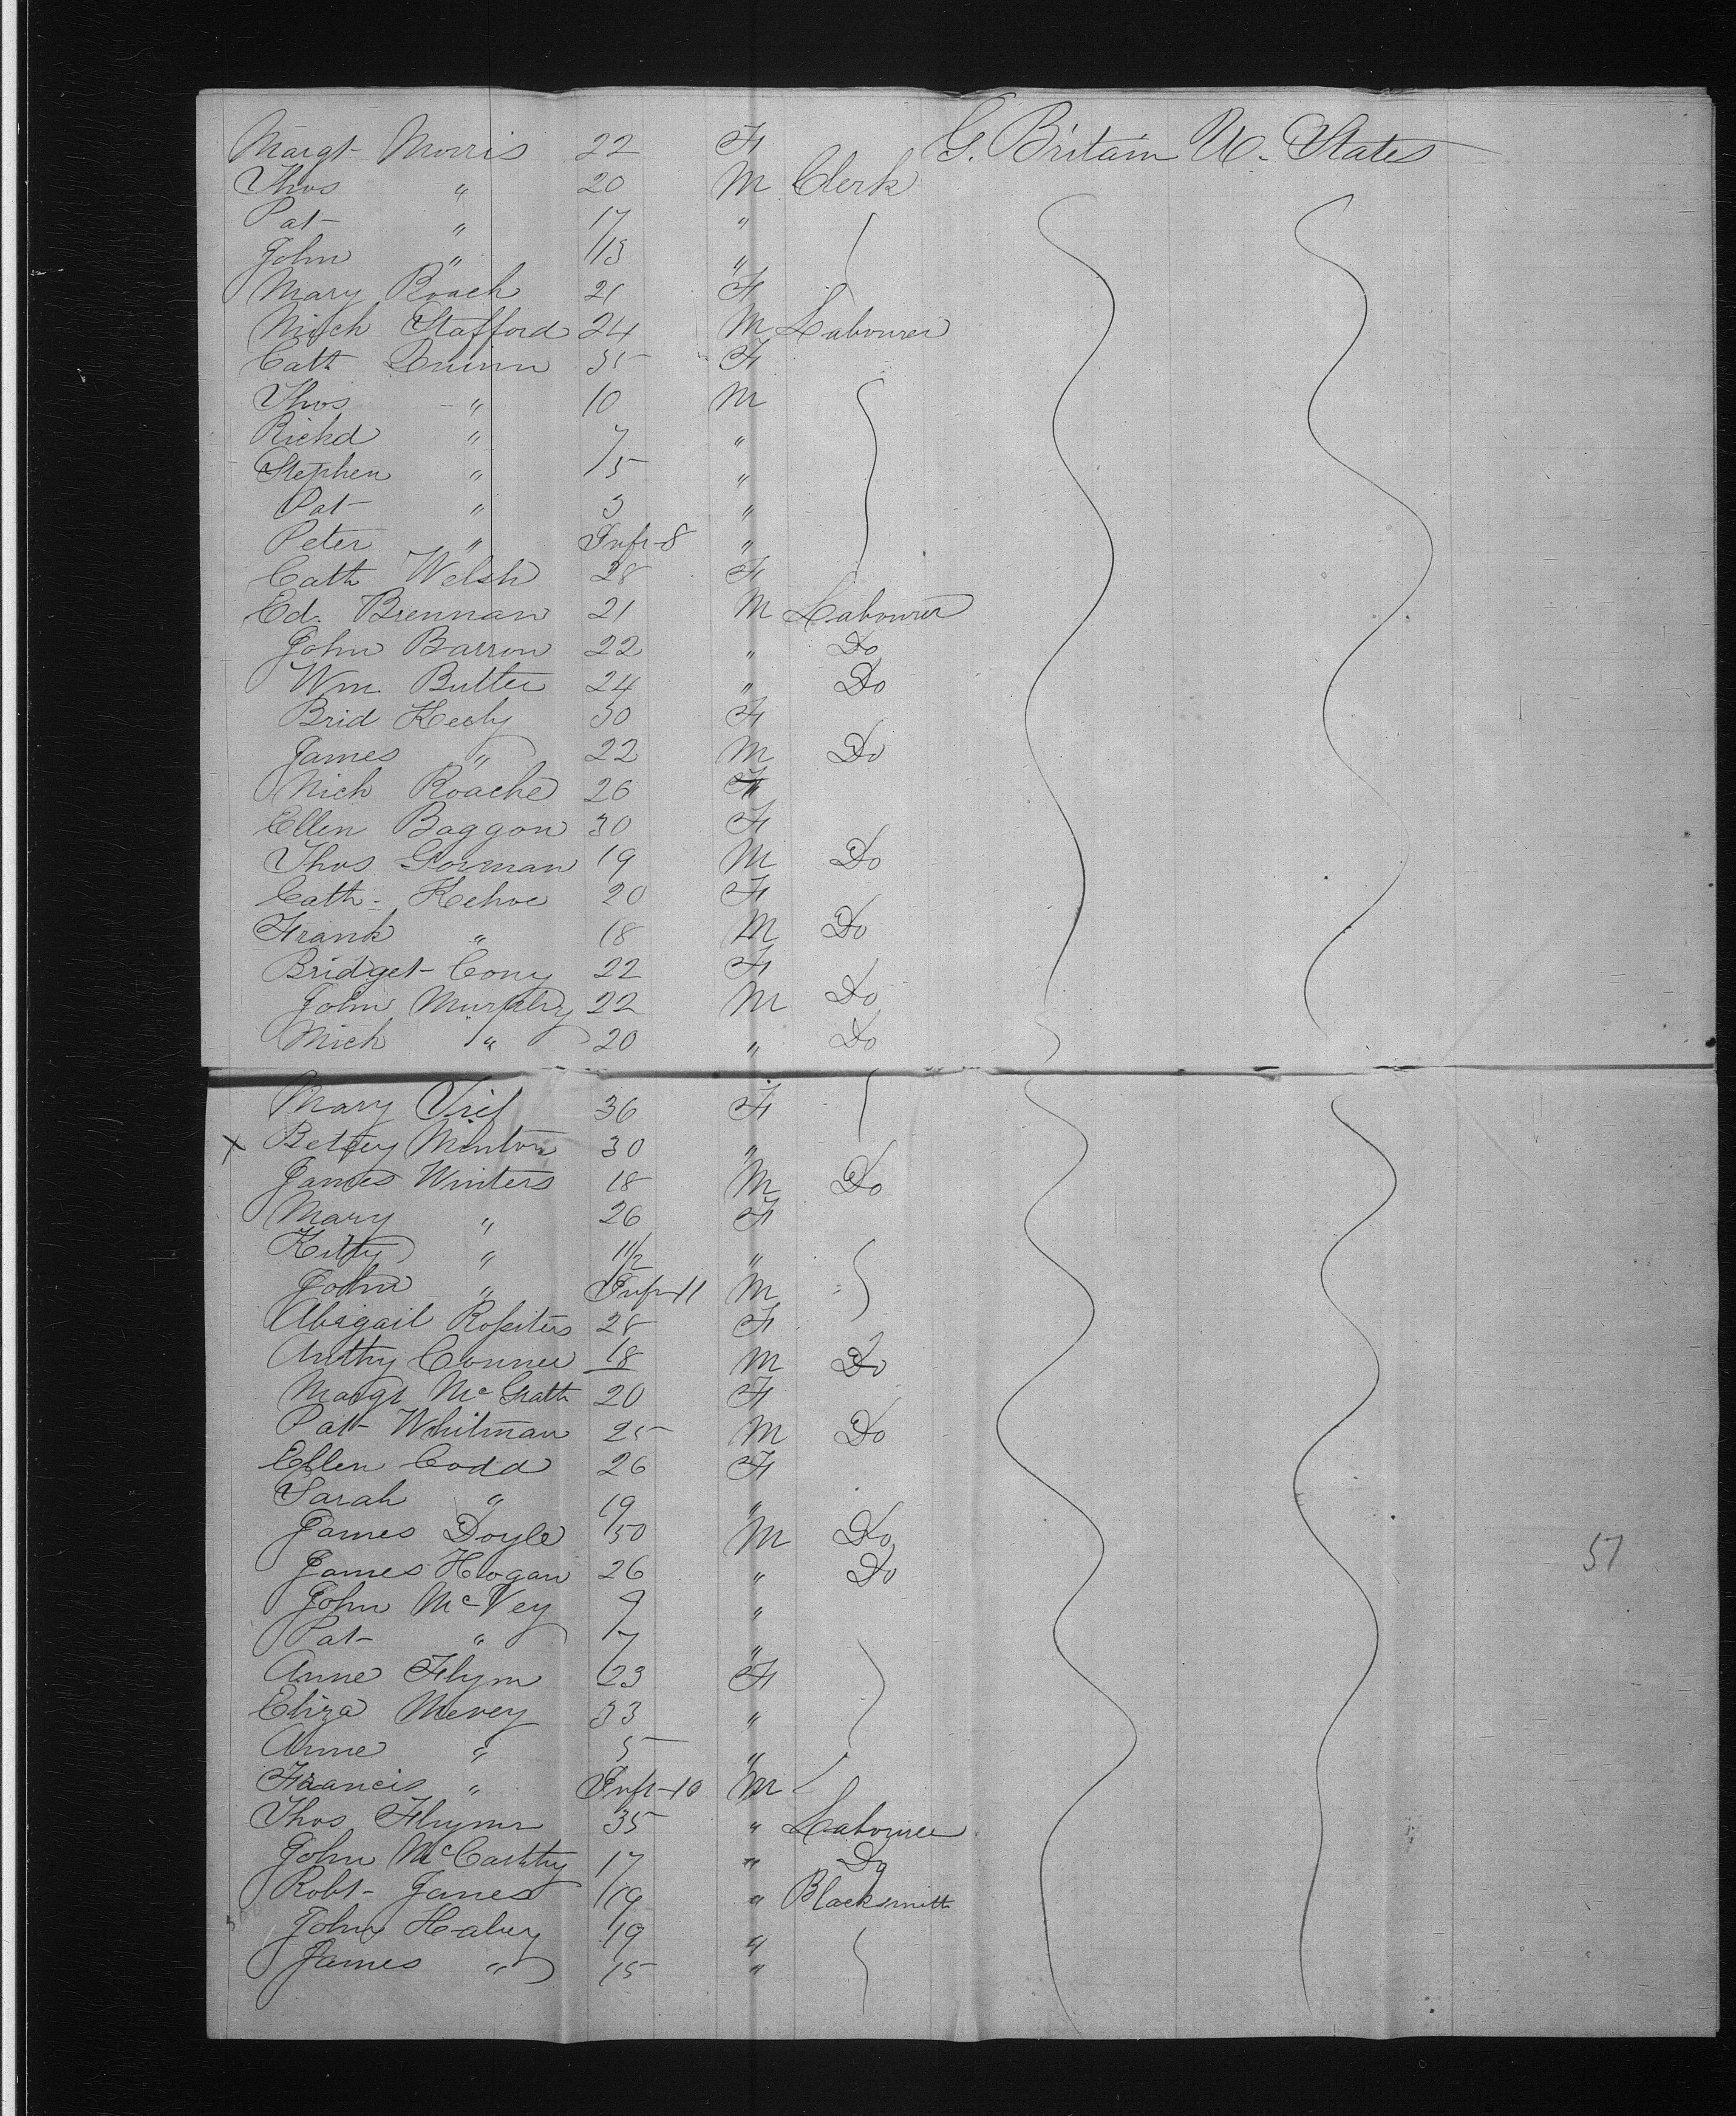 Margt Morris 22 F G. Britain U. States
Thos " 20 M Clerk
Pat " 17 "
John " 13 "
Mary Roach 21 F
Nich Stafford 24 M Labourer
Cath Quinn 35 F
Thos " 10 M
Richd " 7 "
Stephen " 5 "
Pat " 3 "
Peter " Inft-8 "
Cath Welsh 28 F
Ed. Brennan 21 M Labourer
John Barron 22 " Do
Wm. Butler 24 " Do
Brid Keely 30 F
James " 22 M Do
Nich Roache 26
Ellen Baggon 30 F
Thos Gorman 19 M Do
Cath. Kehoe 20 F
Frank " 18 M Do
Bridget Cony 22 F
John Murphy 22 M Do
Mich " 20 " Do
Mary 36 F
x Betsey Minton 30 "
James Winters 18 M Do
Mary " 26 F
Kitty " 1 1/2 "
John " Inft-11 M
Abigail Roſsiters 28 F
Anthy Conner 18 M Do
Margt McGrath 20 F
Patt Whitman 25 M Do
Ellen Codd 26 F
Sarah " 19 "
James Doyle 50 M Do
James Hogan 26 " Do
John McVey 9 "
Pat " 7 "
Anne Flynn 23 F
Eliza Mevey 33 "
Anne " 5 "
Francis " Inft-10 M
Thos Flynn 35 " Labourer
John McCarthy 17 " Do
Robt James 19 " Blacksmith
John Haley 19 "
James " 15 "
57